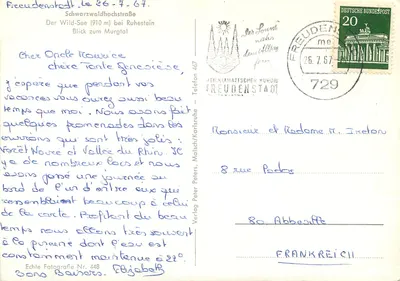 Freudenstadt, le 26-7.67
Schwarzwaldhochstraße
Der Wild-See (910 m) bei Ruhestein
Blick zum Murgtal
Cher Oncle Maurice
chère Tante Geneviève
J'espère que pendant vos
vacances vous aurez aussi beau
temps que moi. Nous avons fait
quelques promenades dans les
environs qui sont très jolis :
Forêt Noire et Vallée du Rhin. Il
y a de nombreux lacs et nous
avons passé une journée au
bord de l'un d'entre eux qui
ressemblaient beaucoup à celui
de la carte. Profitant du beau
temps nous allons très souvent
à la piscine dont l'eau est
constamment maintenue à 22°.
Bons Baisers. Elizabeth
Echte Fotografie Nr. 448
Verlag Peter Peters, Malsch/Karlsruhe · Telefon 467
FREUDENSTADT
FREUDENSTADT
26.7.67
729
DEUTSCHE BUNDESPOST
20
Monsieur et Madame M.
8 rue
80 Abbeville
FRANKREICH